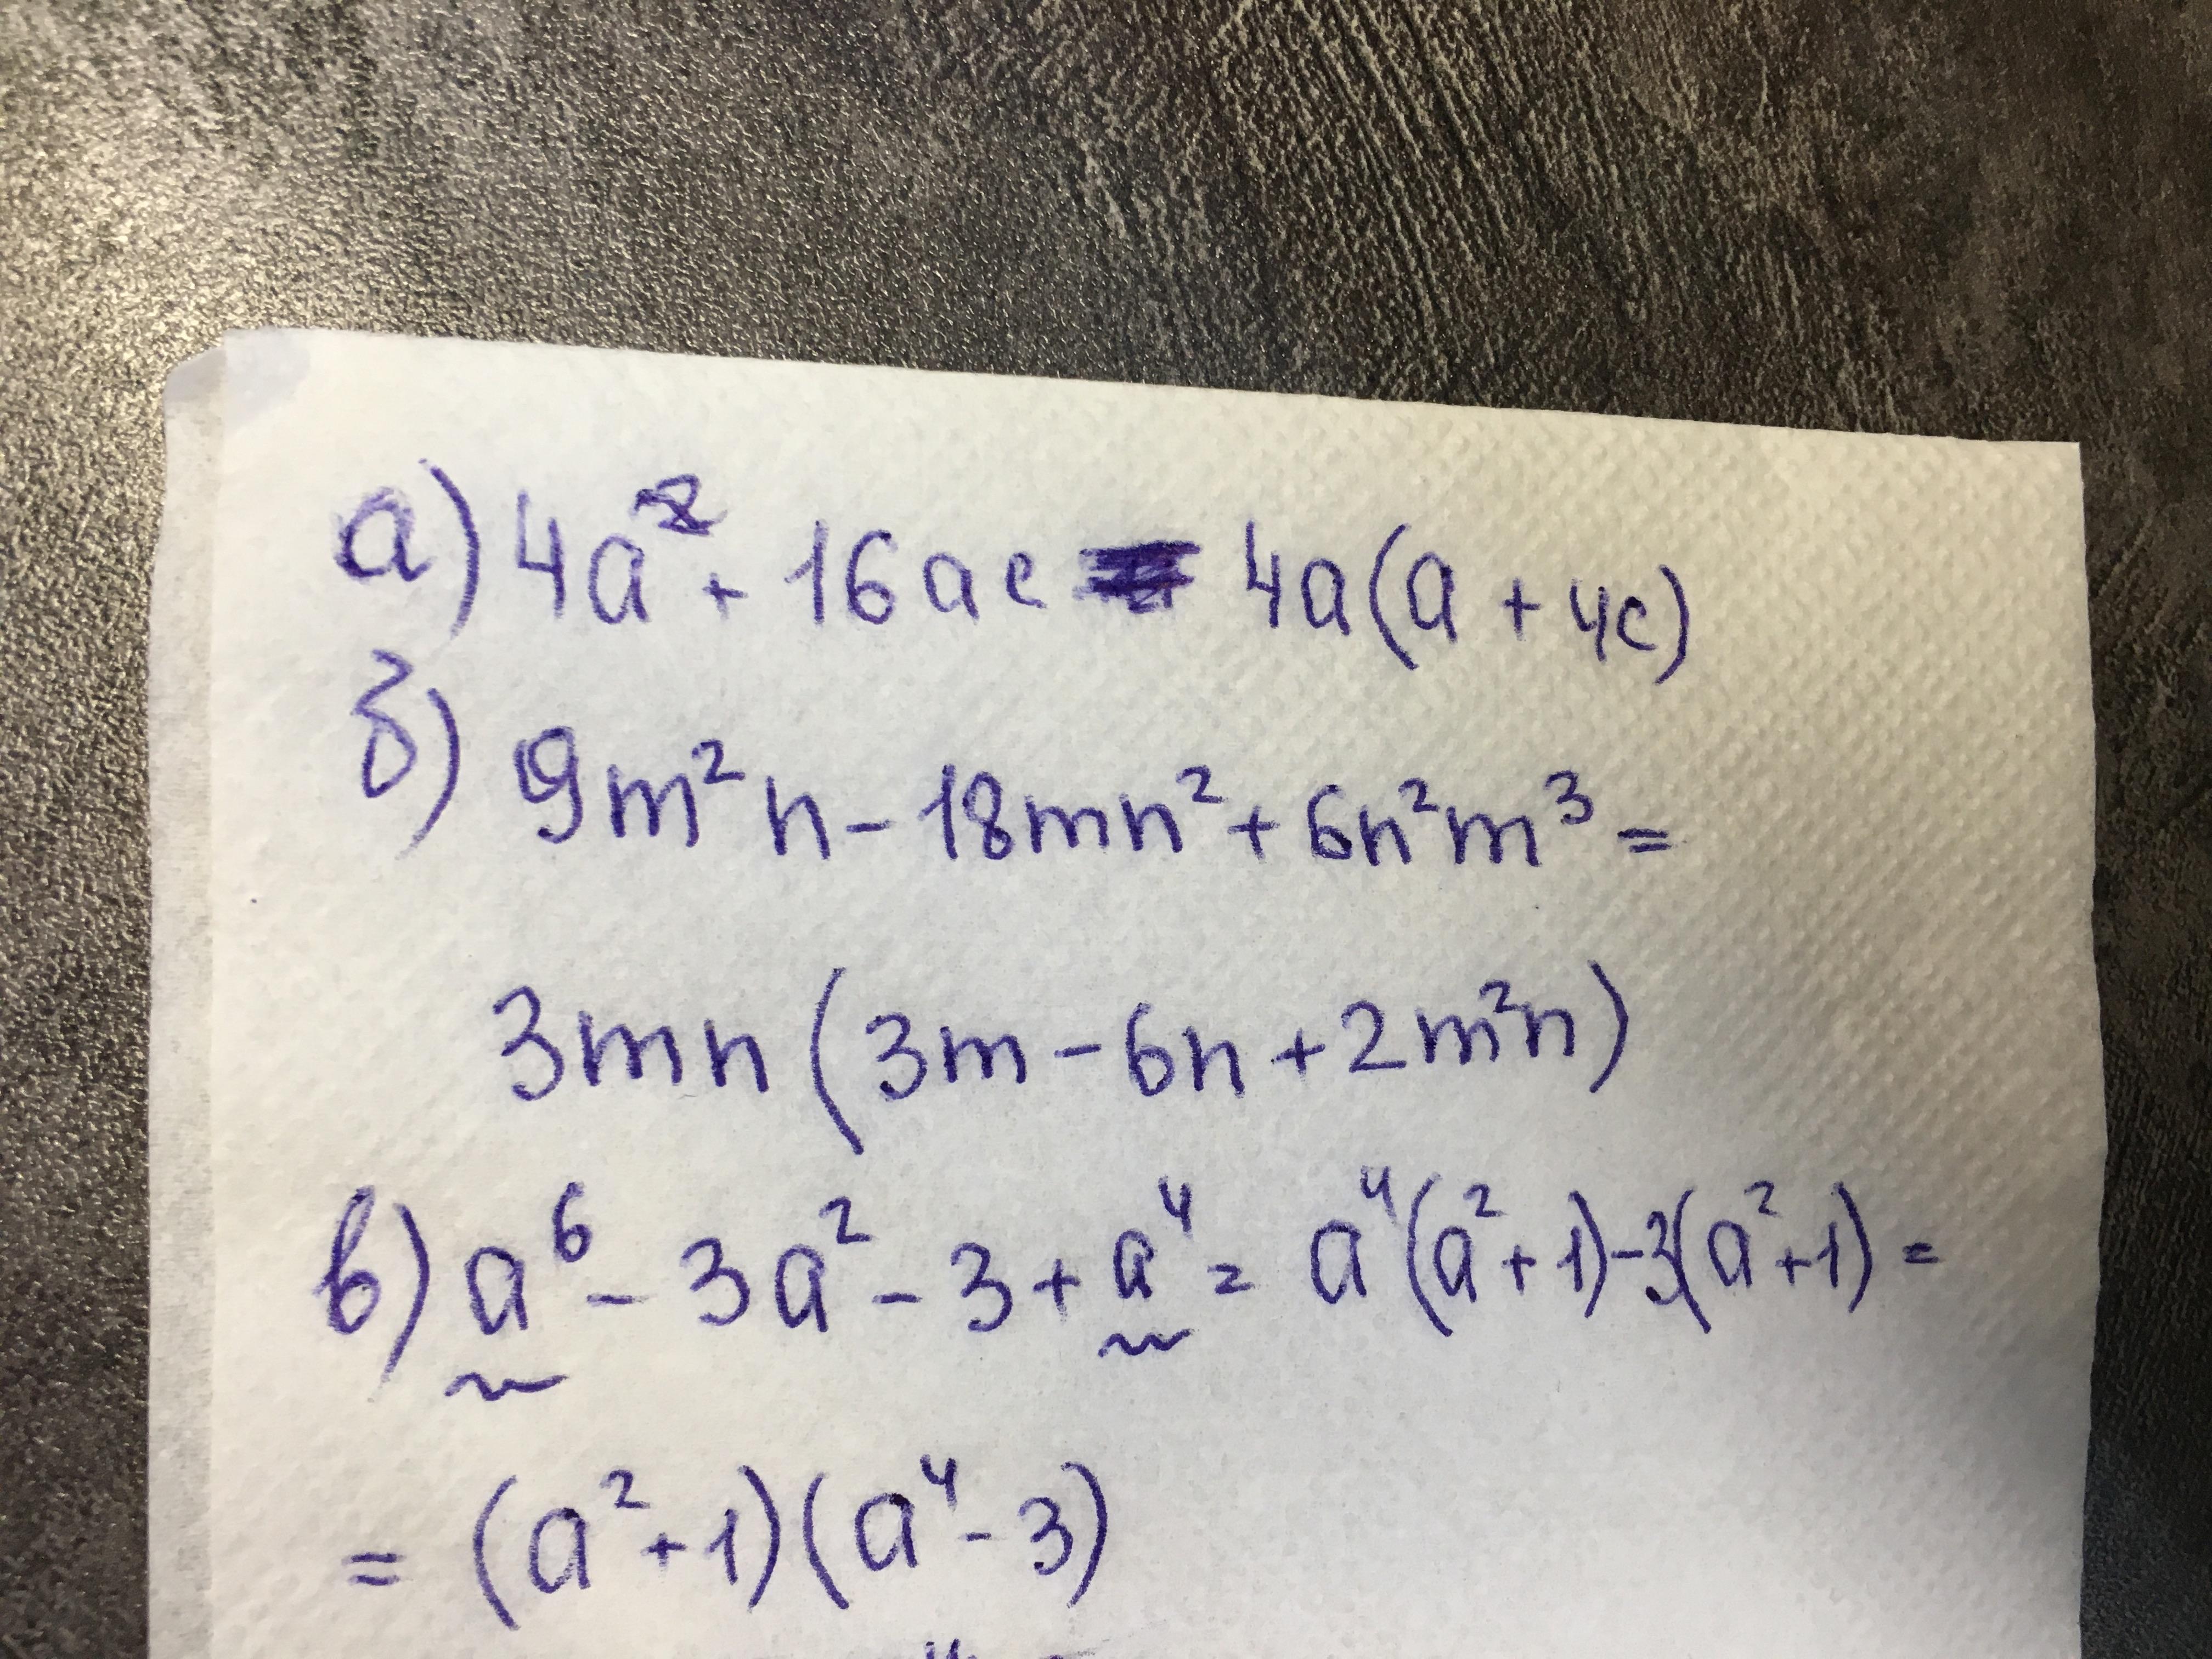 а) 4a² + 16ac = 4a(a + 4c)
б) 9m²n - 18mn² + 6n²m³ =
3mn(3m - 6n + 2m²n)
в) a⁶ - 3a² - 3 + a⁴ = a⁴(a² + 1) - 3(a² + 1) =
= (a² + 1)(a⁴ - 3)